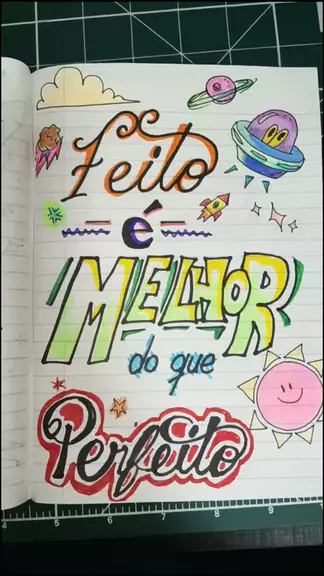 Feito
é
MELHOR
do que
Perfeito
4 5 6 7 8 9